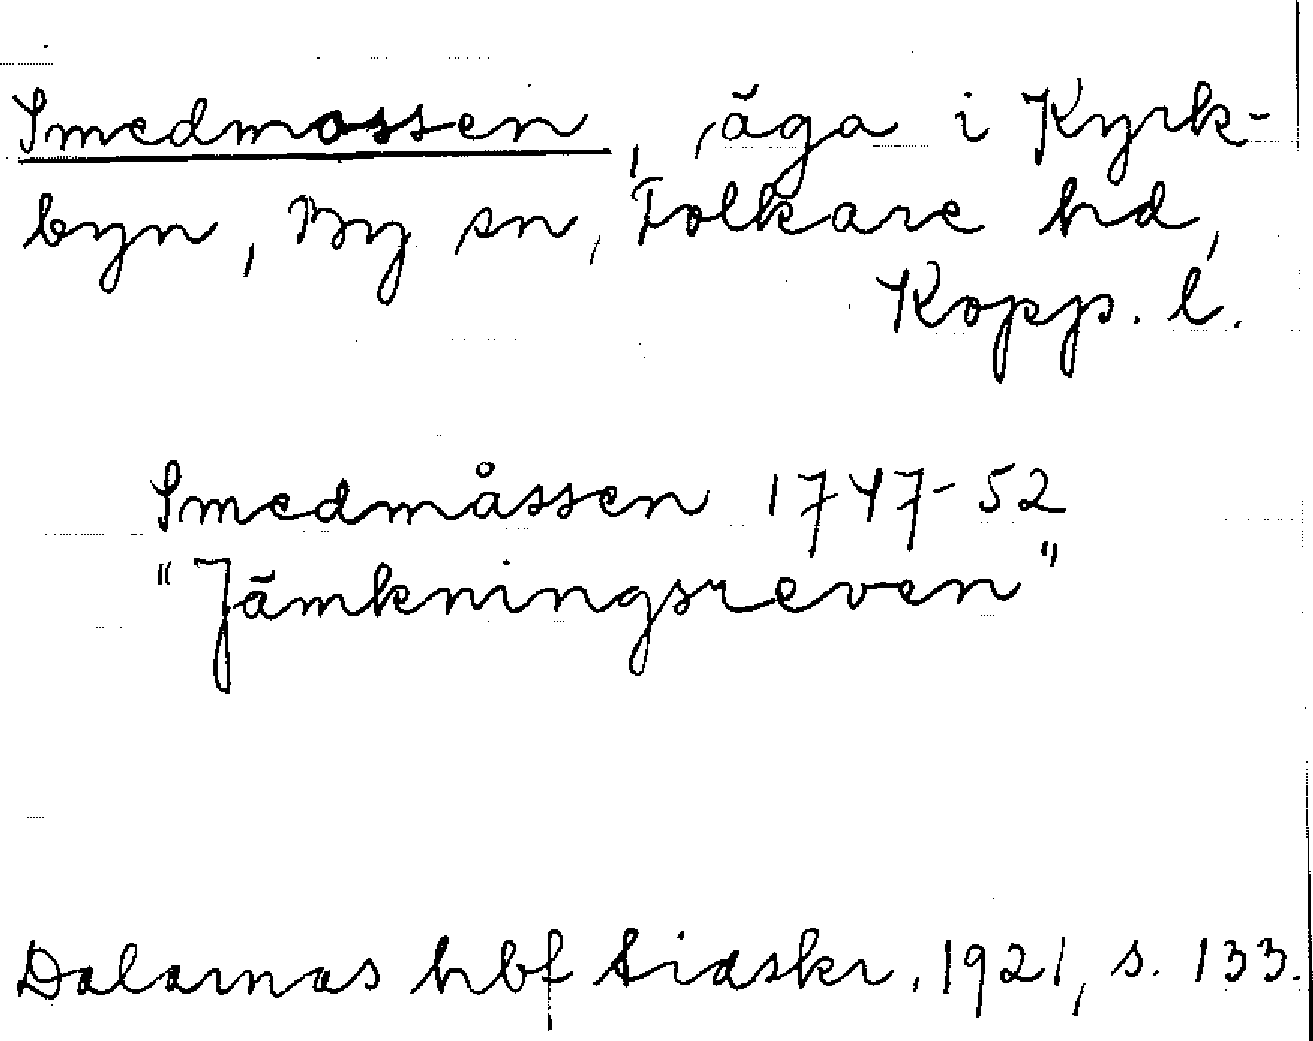 Smedmossen, äga i Kyrk-
byn, By sn, Folkare hd,
Kopp. l.
Smedmåssen 1747-52
"Jämkningsreven"
Dalarnas hbf tidskr. 1921, s. 133.